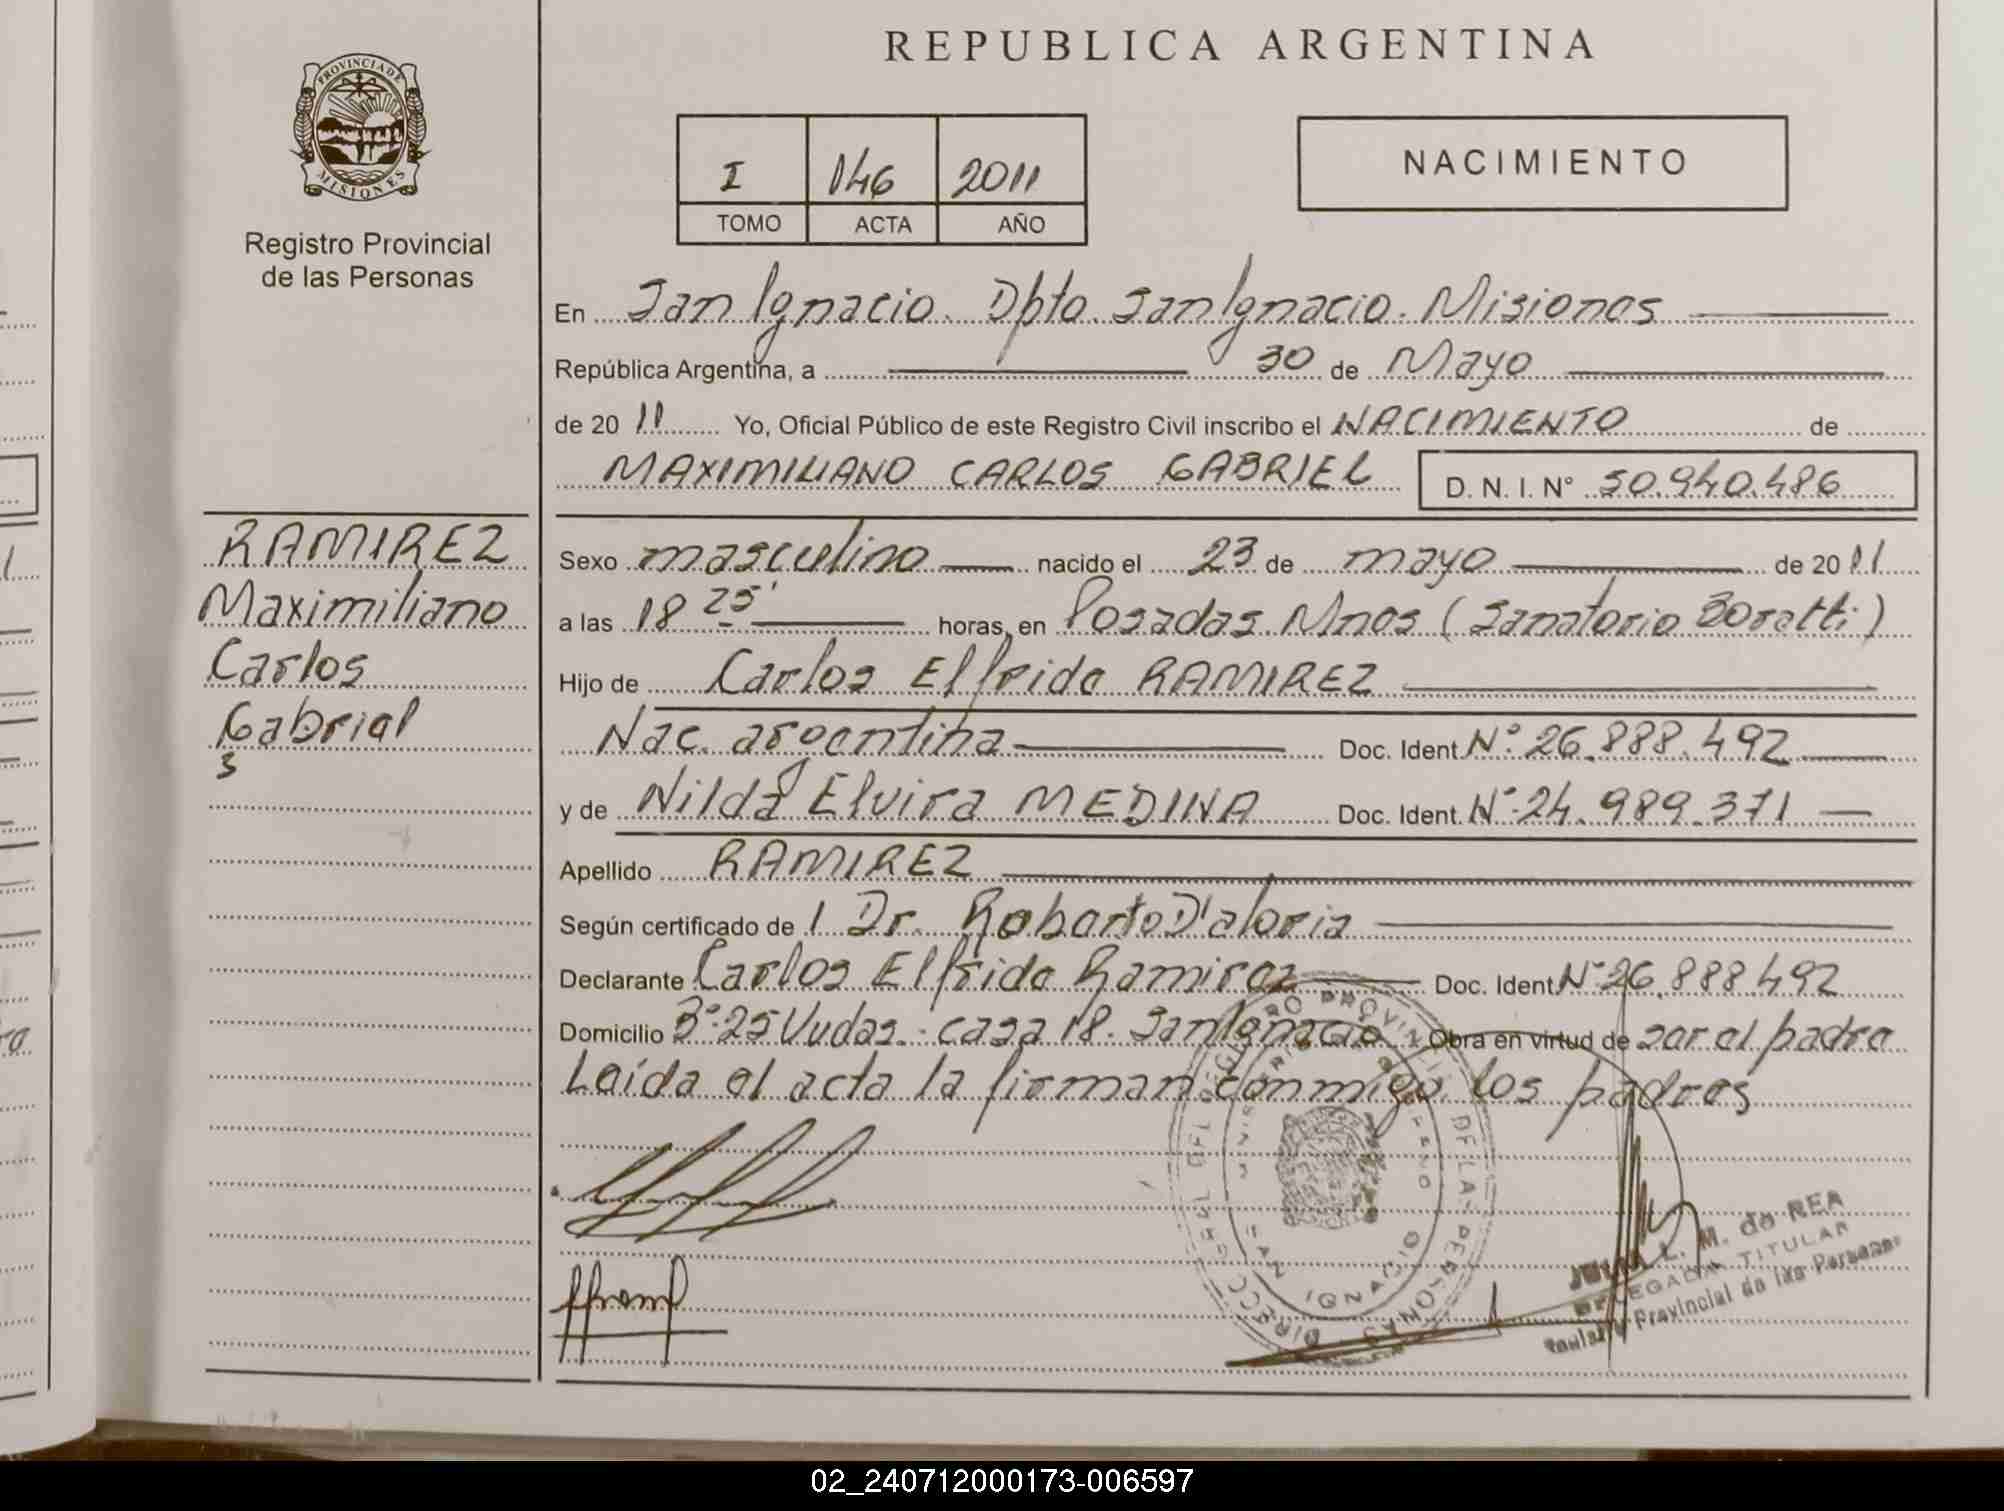 PROVINCIA DE
MISIONES
Registro Provincial
de las Personas
RAMIREZ
Maximiliano
Carlos
Gabriel
3
REPUBLICA ARGENTINA
I 146 2011
TOMO ACTA AÑO
NACIMIENTO
En San Ignacio. Dpto. San Ignacio. Misiones
República Argentina, a 30 de Mayo
de 2011 Yo, Oficial Público de este Registro Civil inscribo el NACIMIENTO de
MAXIMILIANO CARLOS GABRIEL D. N. I. N° 50.940.486
Sexo masculino nacido el 23 de mayo de 2011
a las 18 25' horas, en Posadas. Mnes (Sanatorio Boratti)
Hijo de Carlos Elfrido RAMIREZ
Nac. argentina Doc. Ident. N° 26.888.492
y de Nilda Elvira MEDINA Doc. Ident. N° 24.989.371
Apellido RAMIREZ
Según certificado de l Dr. Roberto D'aloria
Declarante Carlos Elfrido Ramirez Doc. Ident. N° 26.888.492
Domicilio B° 25 Vvdas. casa 18. San Ignacio Obra en virtud de ser el padre
Leída el acta la firman conmigo los padres
DIRECC GRAL DEL REGISTRO PROVINCIAL DE LAS PERSONAS
SAN IGNACIO
L. M. de REA
DELEGADA TITULAR
Provincial de las Personas
02_240712000173-006597